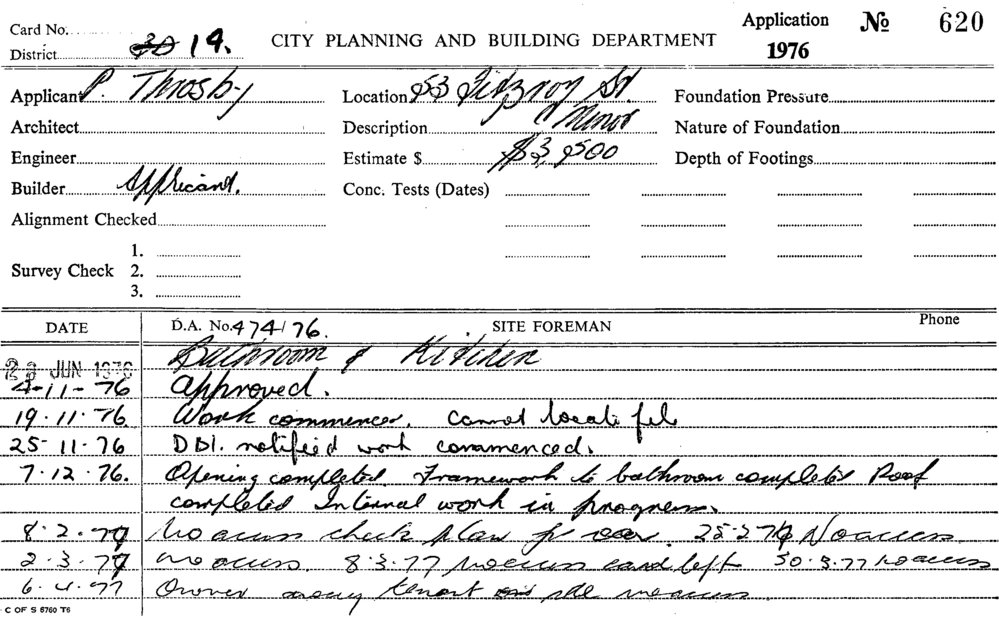 Card No.
District 30 14.
CITY PLANNING AND BUILDING DEPARTMENT
Application No 620
1976
Applicant P. Throsby
Location 53 Fitzroy St
Foundation Pressure
Architect
Description Minor
Nature of Foundation
Engineer
Estimate $ $3,500
Depth of Footings
Builder Applicant.
Conc. Tests (Dates)
Alignment Checked
Survey Check 1.
2.
3.
DATE D.A. No. 474/76. SITE FOREMAN Phone
JUN 1976 Bathroom & Kitchen
4-11-76 Approved.
19.11.76 Work commences. Cannot locate file
25-11-76 DBI. notified work commenced.
7.12.76. Opening completed. Framework to bathroom completed Roof
completed Internal work in progress.
8.2.77 No access check plan 25.2.77 No access
2.3.77 No access. 8.3.77 No access card left 30.3.77 No access
6.4.77 Owner away tenant no access.
C OF S 6760 T6